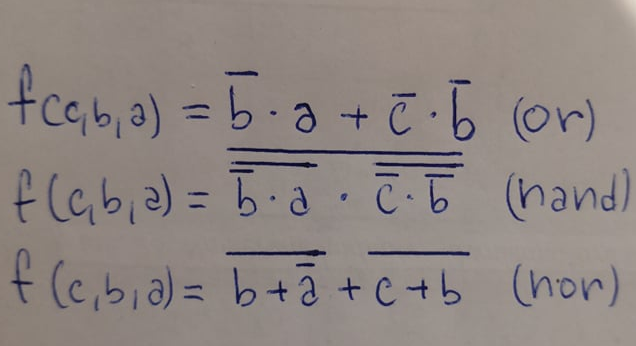 f(c,b,a) = b̅ · a + c̅ · b̅ (or)
f(c,b,a) = \overline{\overline{\overline{b} · a} · \overline{\overline{c} · \overline{b}}} (nand)
f(c,b,a) = \overline{b + \overline{a}} + \overline{c + b} (nor)